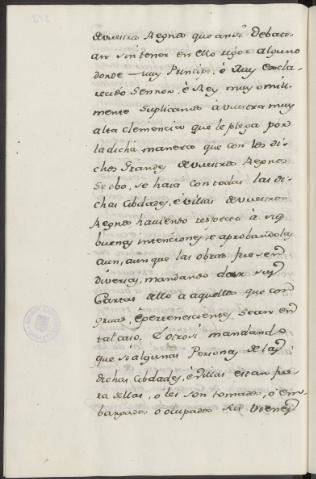 de vuestros Regnos que assi Debaten
an sin tener en ello rigor alguno
donde muy Principe, è Muy Escla-
recido Sennor, è Rey muy omil-
mente suplicamos à vuestra muy
alta clemencia que le plega por
la dicha manera que con los di-
chos Grandes de vuestros Regnos
se obo, se haia con todas las di-
chas Cibdades, è Villas de vuestros
Regnos haviendo respecto à sus
buenas intenciones, è aprobandolas
aun, aunque las obras fuesen
diversas, mandando dar sus
Cartas dello à aquellos que con-
gruas, è pertenescientes sean en
tal caso. Otrosi mandando
que si algunas Personas de las
dichas Cibdades, è Villas estan fue-
ra dellas, o les son tomados, ò em-
bargados ò ocupados sus vienes